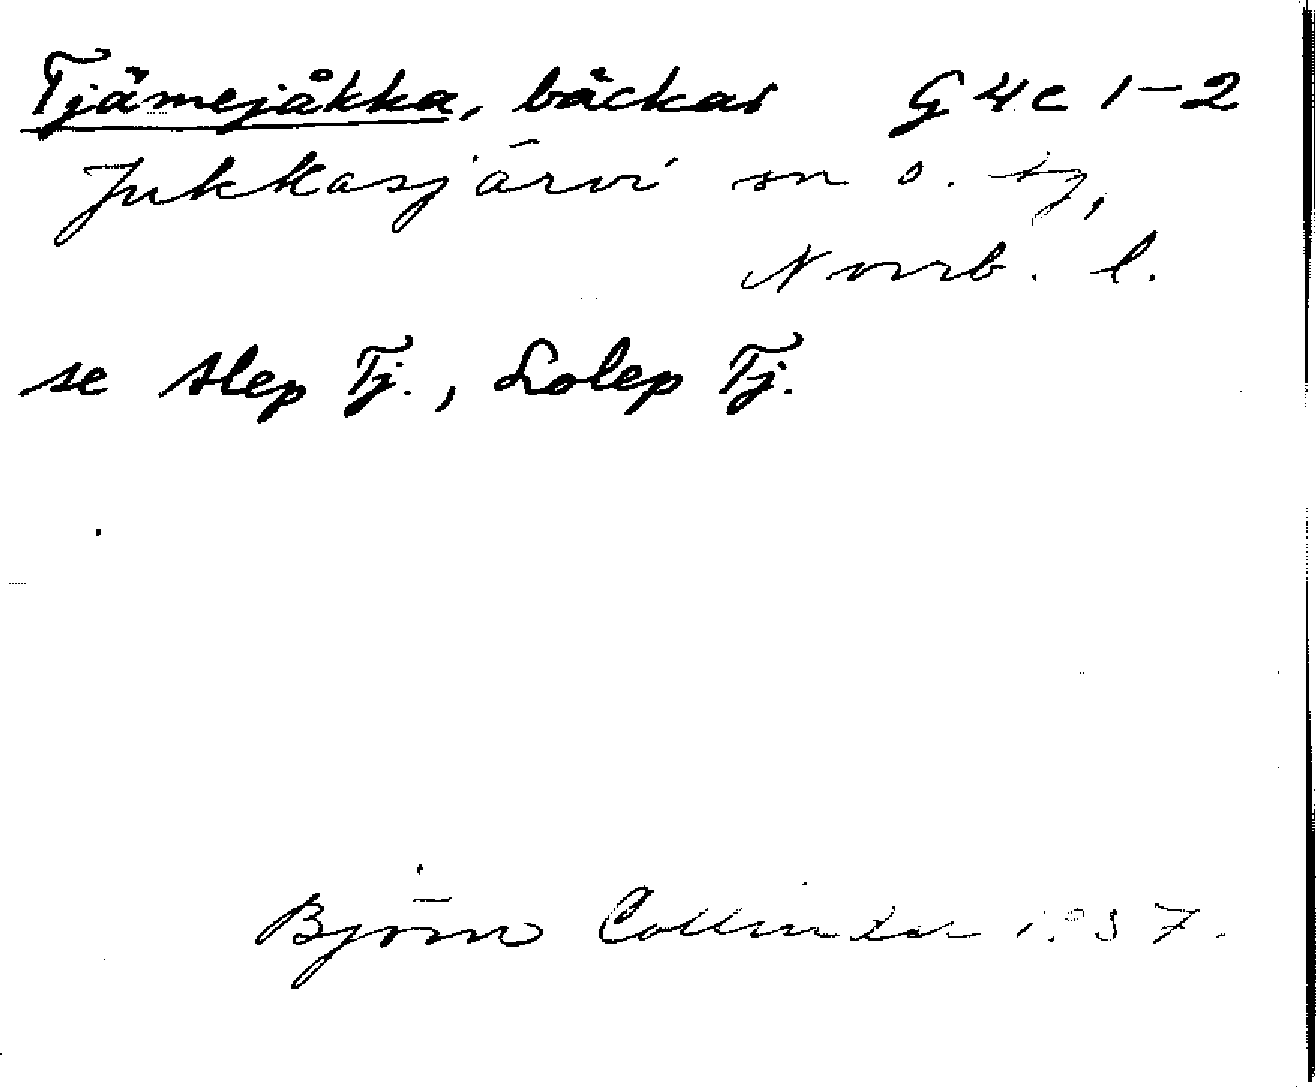 Tjämejåkka, bäckar G 4 c 1-2
Jukkasjärvi sn o. tg,
Norrb. l.
se Alep Tj., Lolep Tj.
Björn Collinder 1957.